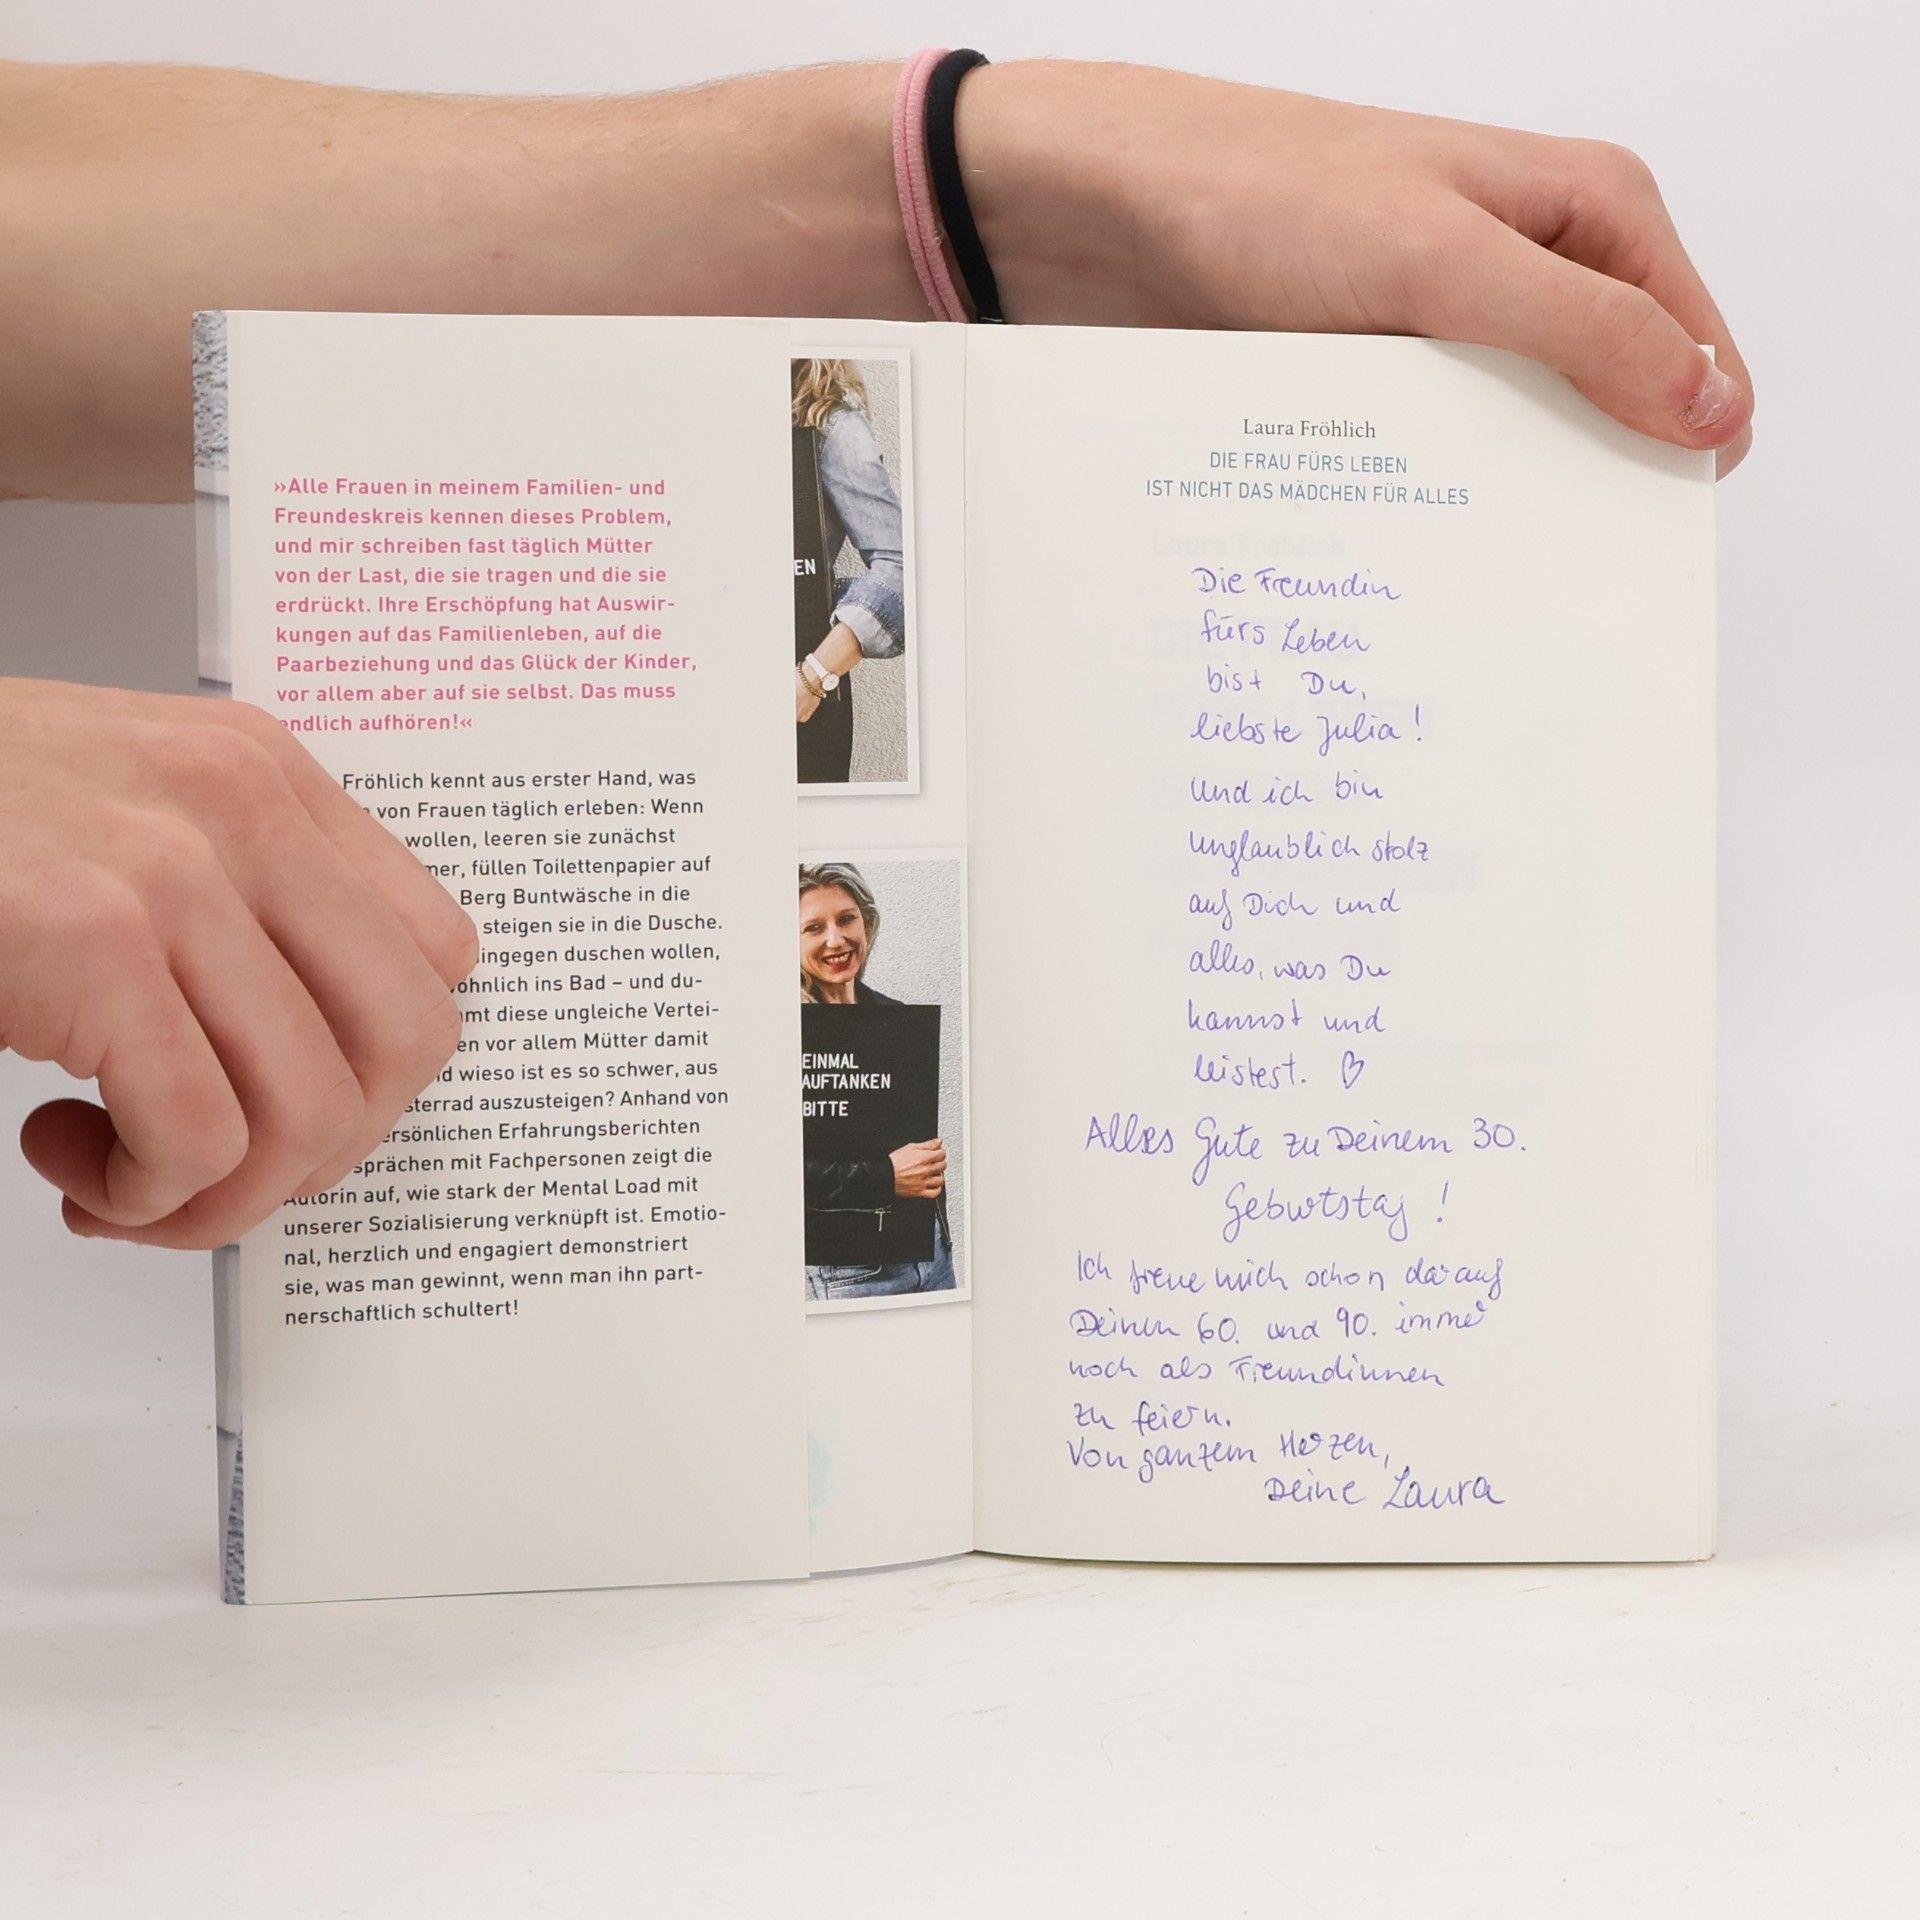 »Alle Frauen in meinem Familien- und
Freundeskreis kennen dieses Problem,
und mir schreiben fast täglich Mütter
von der Last, die sie tragen und die sie
erdrückt. Ihre Erschöpfung hat Auswir-
kungen auf das Familienleben, auf die
Paarbeziehung und das Glück der Kinder,
vor allem aber auf sie selbst. Das muss
endlich aufhören!«
Fröhlich kennt aus erster Hand, was
von Frauen täglich erleben: Wenn
wollen, leeren sie zunächst
mer, füllen Toilettenpapier auf
Berg Buntwäsche in die
steigen sie in die Dusche.
ingegen duschen wollen,
öhnlich ins Bad – und du-
mt diese ungleiche Vertei-
en vor allem Mütter damit
d wieso ist es so schwer, aus
sterrad auszusteigen? Anhand von
ersönlichen Erfahrungsberichten
sprächen mit Fachpersonen zeigt die
Autorin auf, wie stark der Mental Load mit
unserer Sozialisierung verknüpft ist. Emotio-
nal, herzlich und engagiert demonstriert
sie, was man gewinnt, wenn man ihn part-
nerschaftlich schultert!
EN
EINMAL
AUFTANKEN
BITTE
Laura Fröhlich
DIE FRAU FÜRS LEBEN
IST NICHT DAS MÄDCHEN FÜR ALLES
Die Freundin
fürs Leben
bist Du,
liebste Julia!
Und ich bin
unglaublich stolz
auf Dich und
alles, was Du
kannst und
leistest. ♡
Alles Gute zu Deinem 30.
Geburtstag!
Ich freue mich schon darauf
Deinen 60. und 90. immer
noch als Freundinnen
zu feiern.
Von ganzem Herzen,
Deine Laura